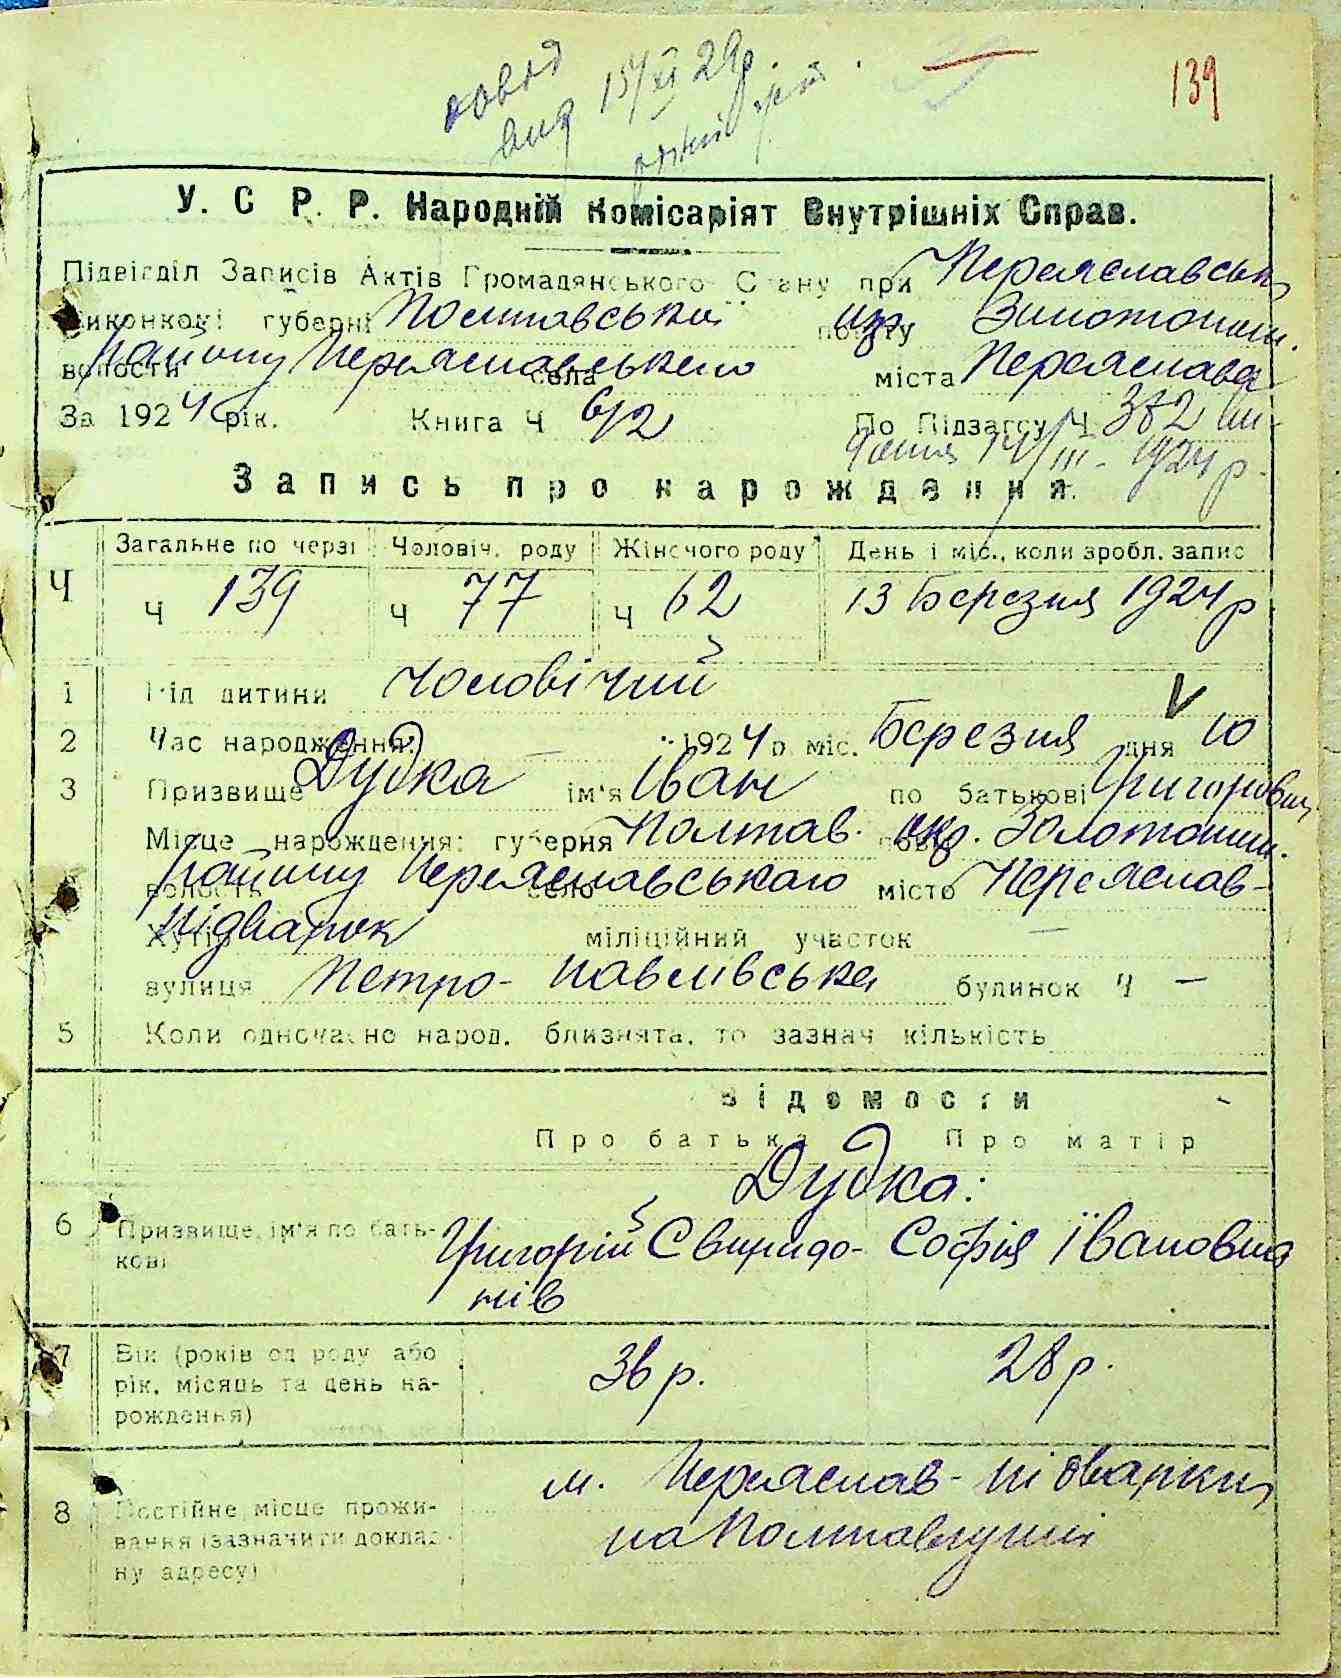 довід 139
вид 15/XI 29 р.
У. С. Р. Р. Народній Комісаріят Внутрішніх Справ.
Підвідділ Записів Актів Громадянського Стану при Переяславськ
Виконкомі губерні Полтавської повіту окр. Золотонош.
волости Району Переяславського села міста Переяслава
За 1924 рік. Книга Ч 6/2 По Підзагсу Ч 382
14/III - 1924 р.
Запись про нарождення.
Ч Загальне по черзі Чоловіч. роду Жіночого роду День і міс., коли зробл. запис
Ч 139 Ч 77 Ч 62 13 Березня 1924 р
1 Рід дитини Чоловічий
2 Час народження: — 1924 р. міс. Березня дня 10
3 Призвище Дудка ім'я Іван по батькові Григорович
Місце нарождення: губерня Полтав. повіт окр. Золотонош.
волость Району Переяславського село місто Переяслав-
Хутір Підварок міліційний участок —
вулиця Петро-Павлівська будинок Ч —
5 Коли одночасно народ. близнята, то зазнач кількість
Відомости
Про батька Про матір
Дудка:
6 Призвище, ім'я по бать- Григорій Свиридо- Софія Івановна
кові нів
7 Вік (років од роду або 36 р. 28 р.
рік, місяць та день на-
рождення)
8 Постійне місце прожи- м. Переяслав-підварки,
вання (зазначити доклад- на Полтавщині
ну адресу)